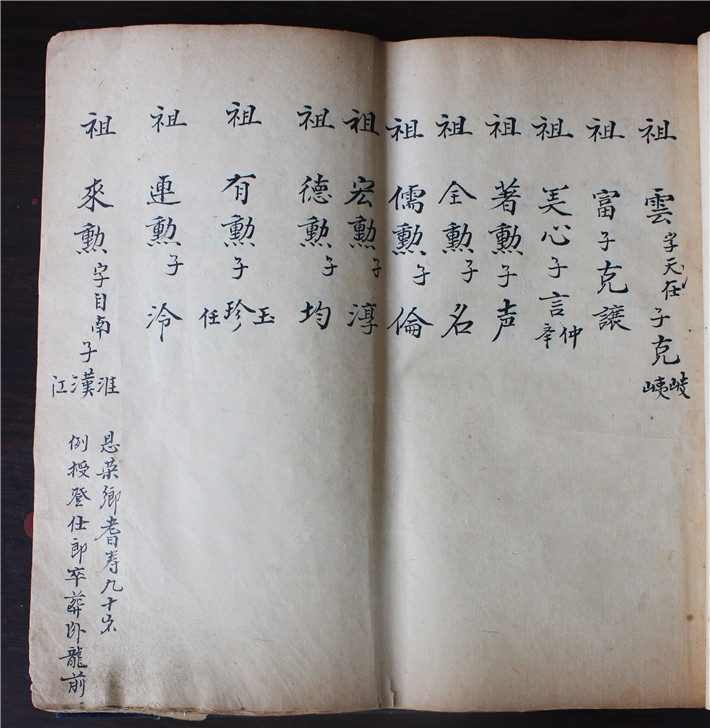 祖 雲 字天任 子克岐峓
祖 富子克讓
祖 美心子言仲辛
祖 著勲子声
祖 全勲子名
祖 儒勲子倫
祖 宏勲子淳
祖 德勲子均
祖 有勲子玉珍任
祖 連勲子泠
祖 來勲字目南子淮漢江
恩荣鄉耆寿九十岁
例授登仕郎卒葬卧龍前